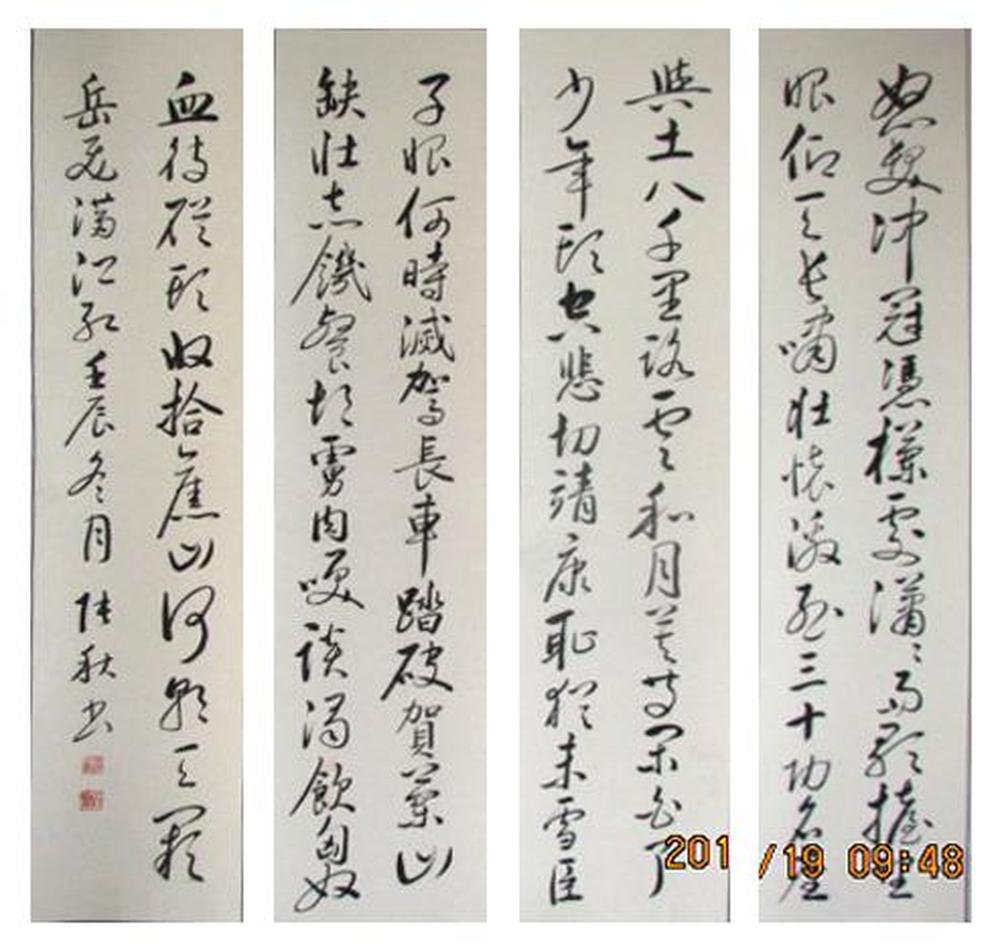 怒髮冲冠憑欄處瀟瀟雨歇擡望
眼仰天長嘯壯懷激烈三十功名塵
與土八千里路雲和月莫等閑白了
少年頭空悲切靖康恥猶未雪臣
子恨何時滅駕長車踏破賀蘭山
缺壯志饑餐胡虜肉咲談渴飲匈奴
血待從頭收拾舊山河朝天闕
岳飛滿江紅壬辰冬月秋书
201 /19 09:48